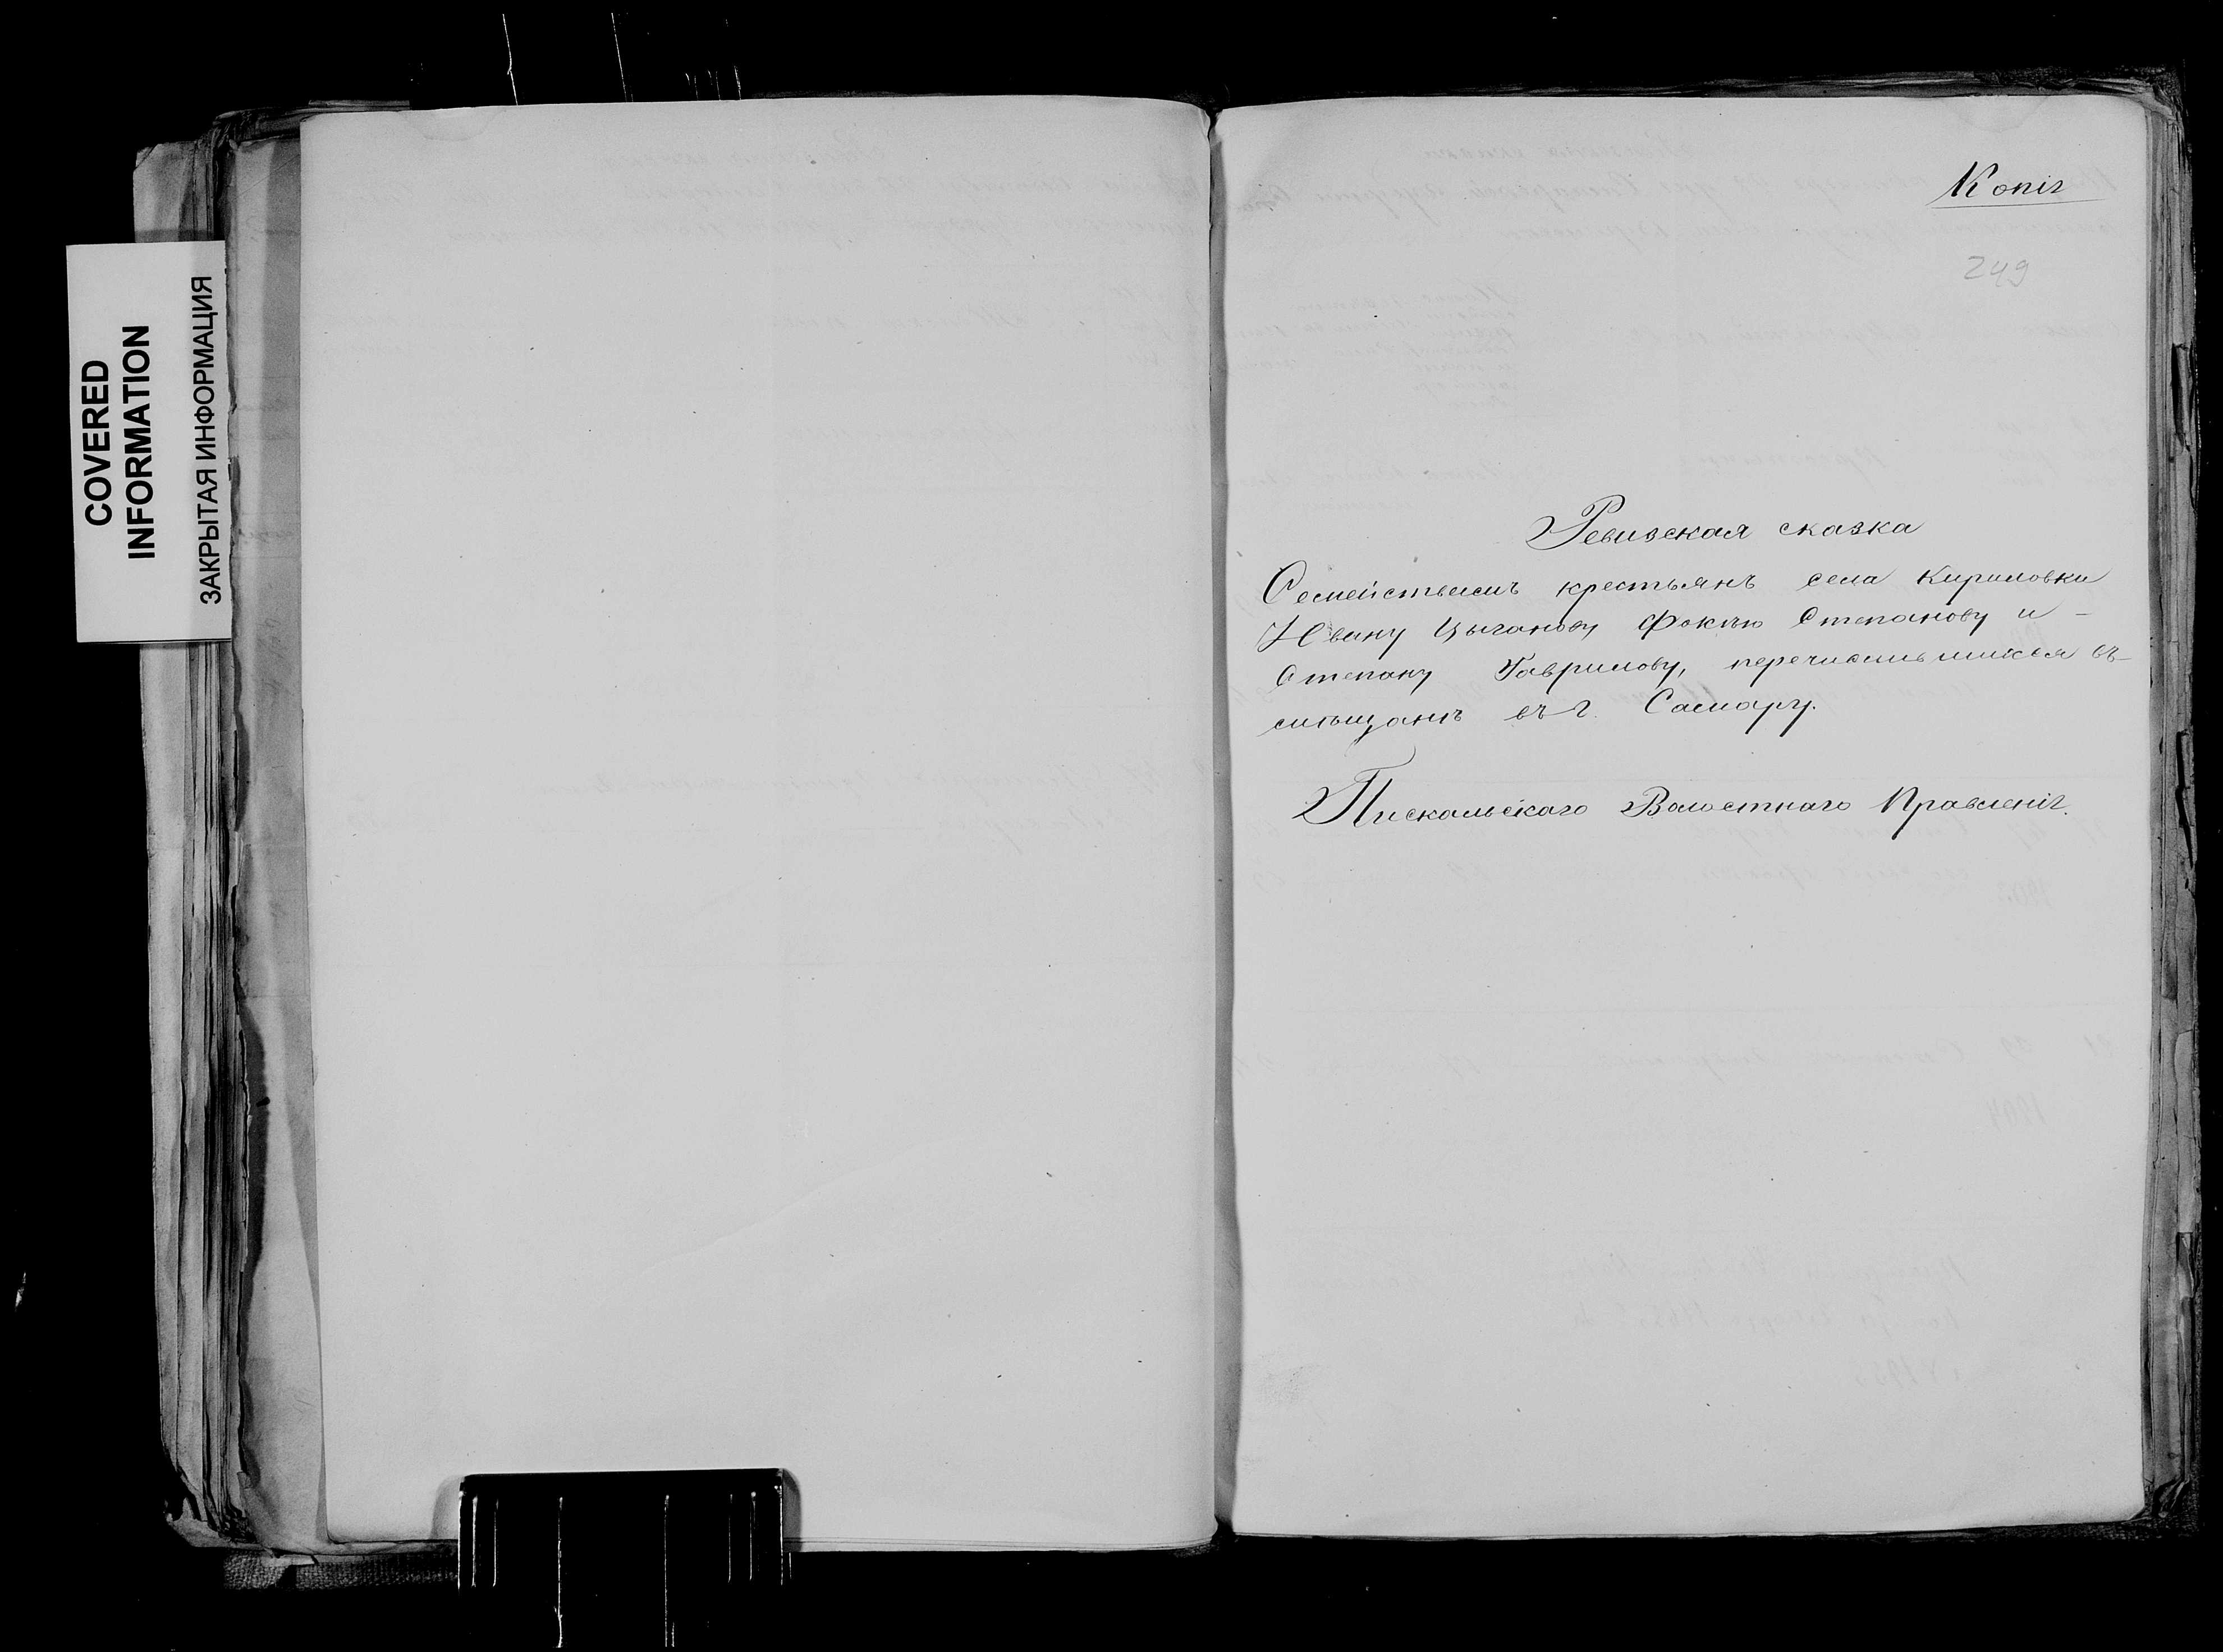 COVERED
INFORMATION
ЗАКРЫТАЯ ИНФОРМАЦИЯ
Копія
249
Ревизская сказка
Семействамъ крестьянъ села Кириловки
Ивану Цыганову Фокѣю Степанову и -
Степану Гаврилову, перечислившихся въ
мѣщанъ въ г. Самару.
Пискальскаго Волостнаго Правленія.